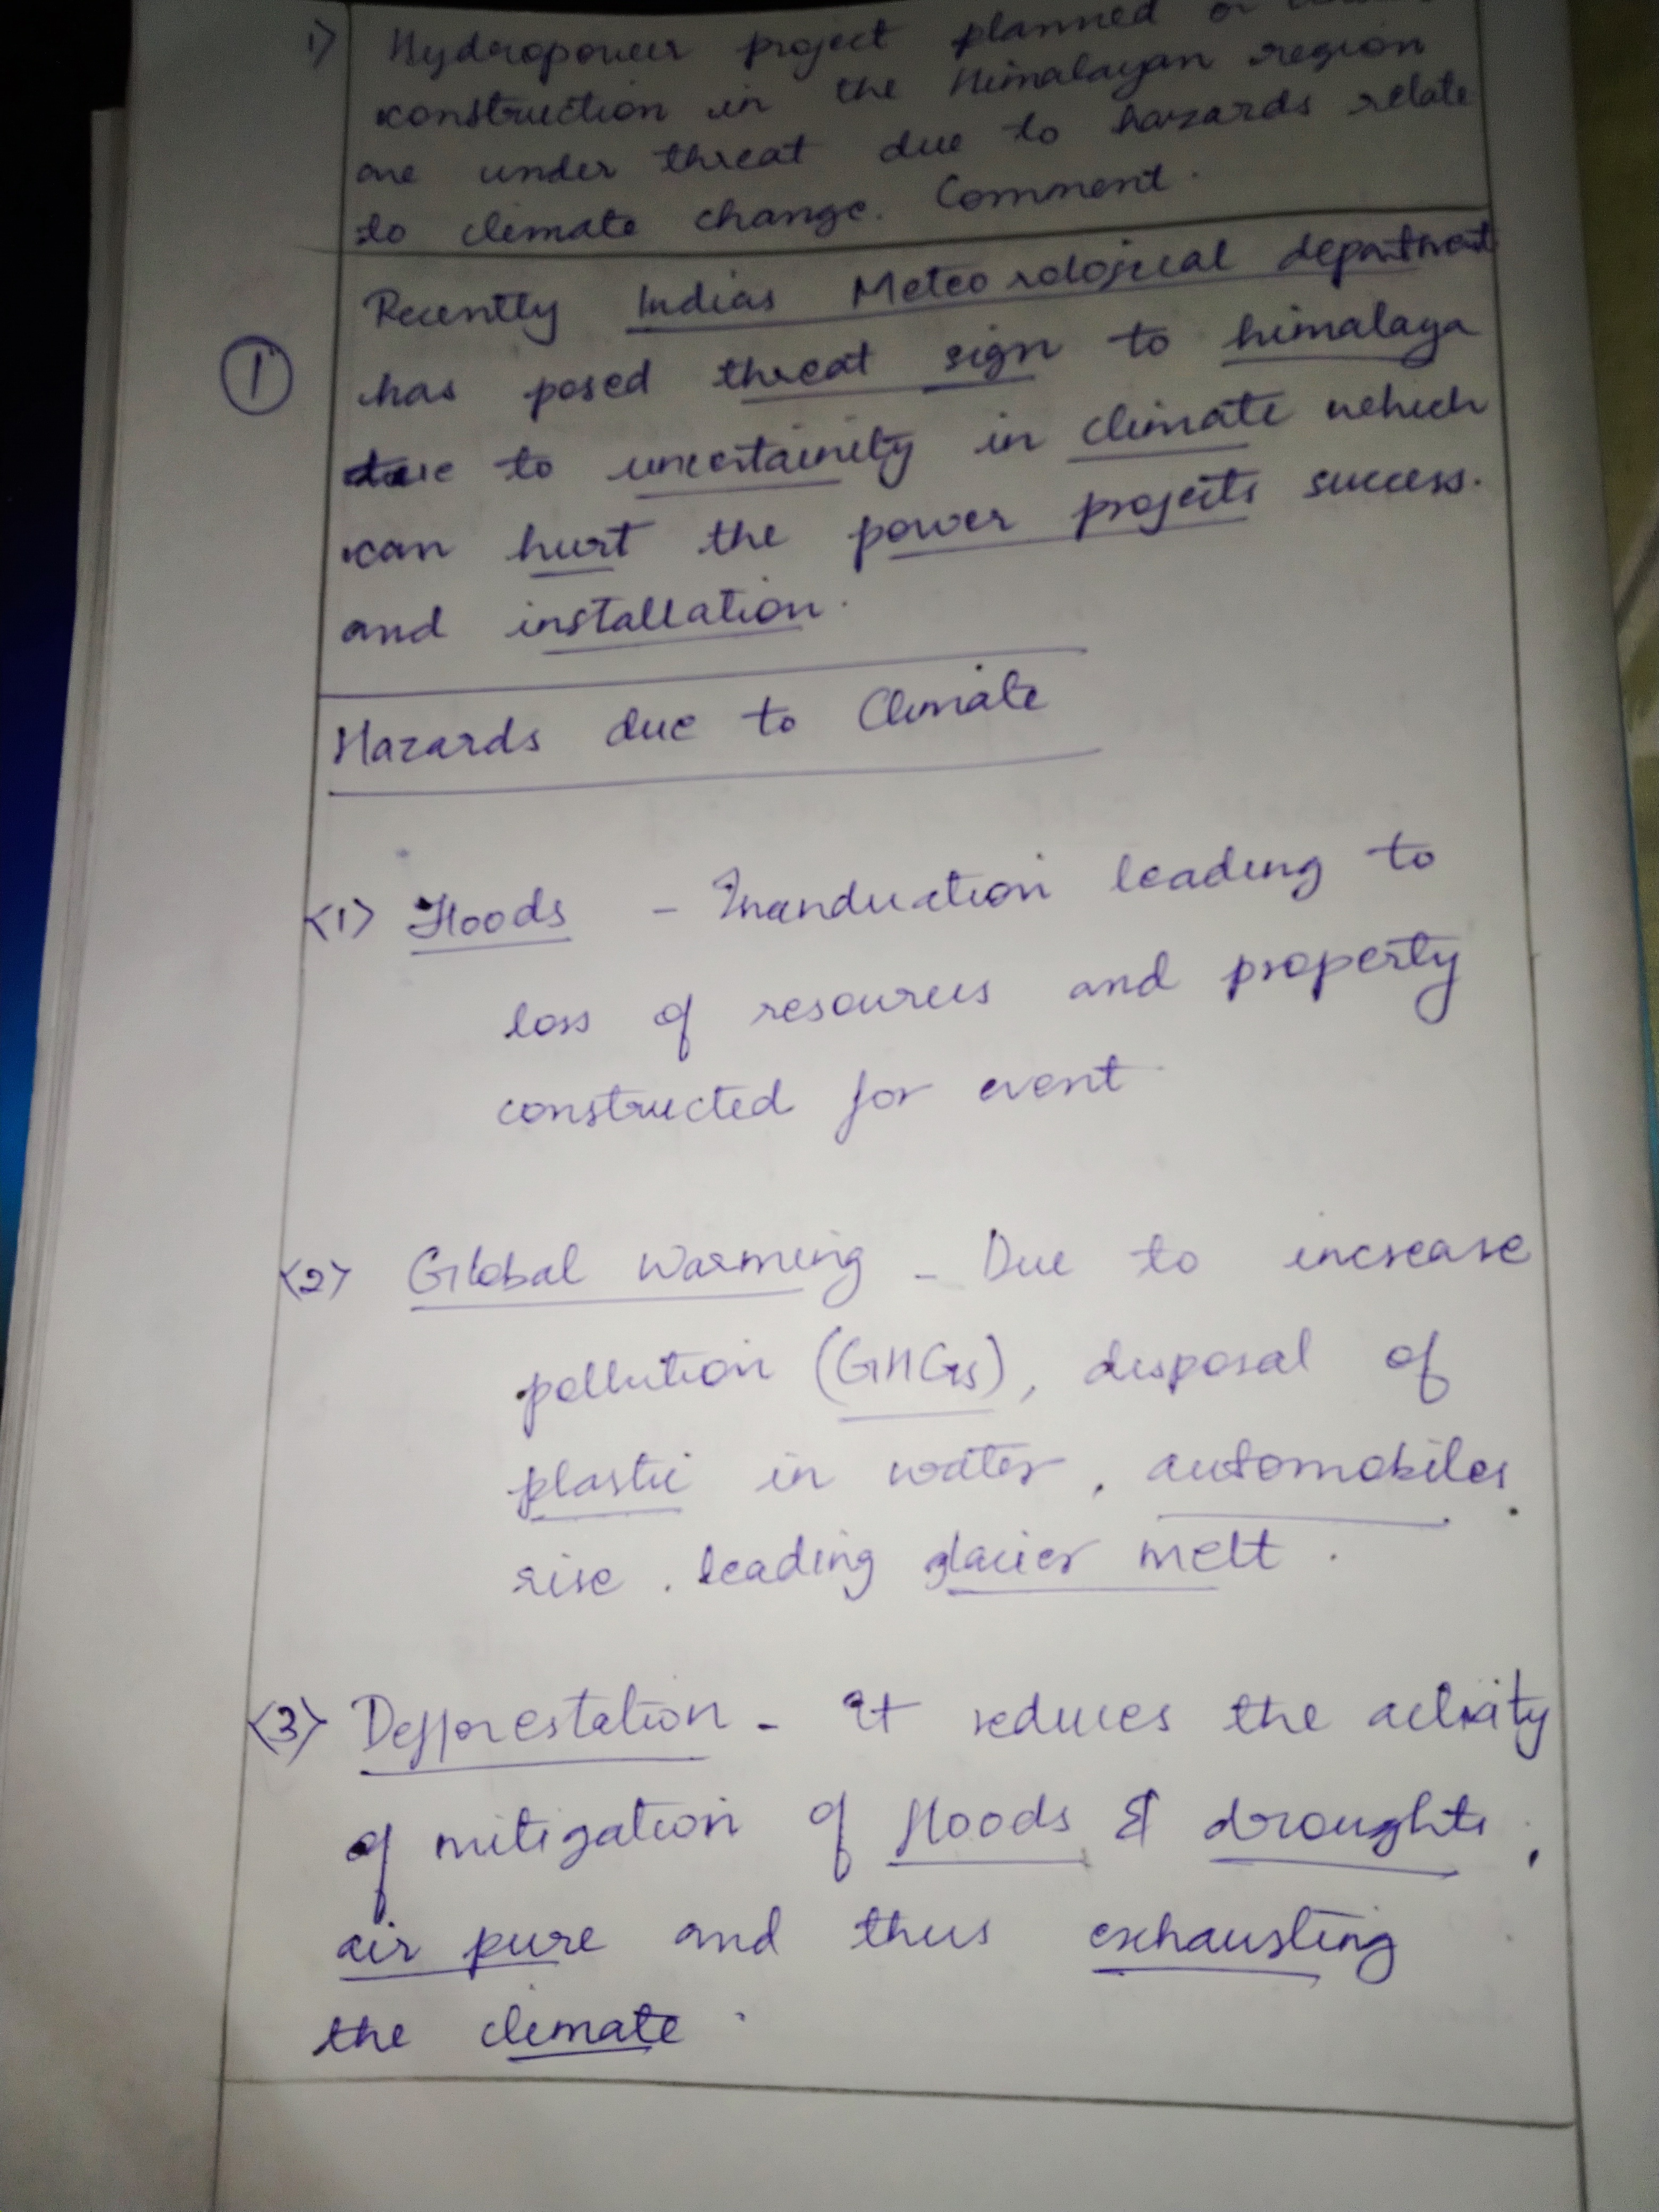 1) Hydropower project planned or
construction in the Himalayan region
are under threat due to hazards relate
to climate change. Comment.
Recently Indias Meteorological department
1 has posed threat sign to himalaya
due to uncertainity in climate which
can hurt the power projects success.
and installation.
Hazards due to Climate
<1> Floods - Inanduction leading to
loss of resources and property
constructed for event
<2> Global Warming - Due to increase
pollution (GHGs), disposal of
plastic in water, automobiles
rise. leading glacier melt.
<3> Defforestation - It reduces the activity
of mitigation of floods & droughts,
air pure and thus exhausting
the climate.